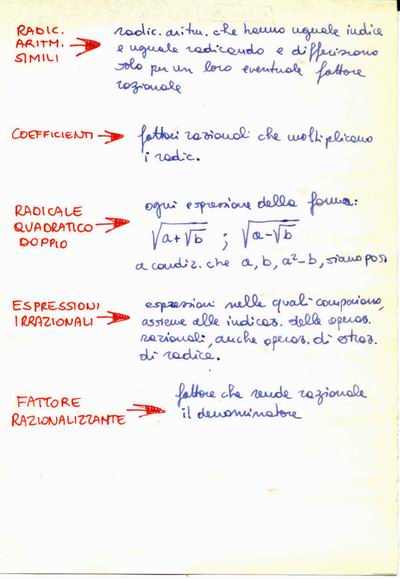 RADIC. ARITM. SIMILI → radic. aritm. che hanno uguale indice
e uguale radicando e differiscono
solo per un loro eventuale fattore
razionale
COEFFICIENTI → fattori razionali che moltiplicano
i radic.
RADICALE QUADRATICO DOPPIO → ogni espressione della forma:
√(a+√b) ; √(a-√b)
a condiz. che a, b, a²-b, siano posi
ESPRESSIONI IRRAZIONALI → espressioni nelle quali compaiono,
assieme alle indicaz. delle operaz.
razionali, anche operaz. di estraz.
di radice.
FATTORE RAZIONALIZZANTE → fattore che rende razionale
il denominatore